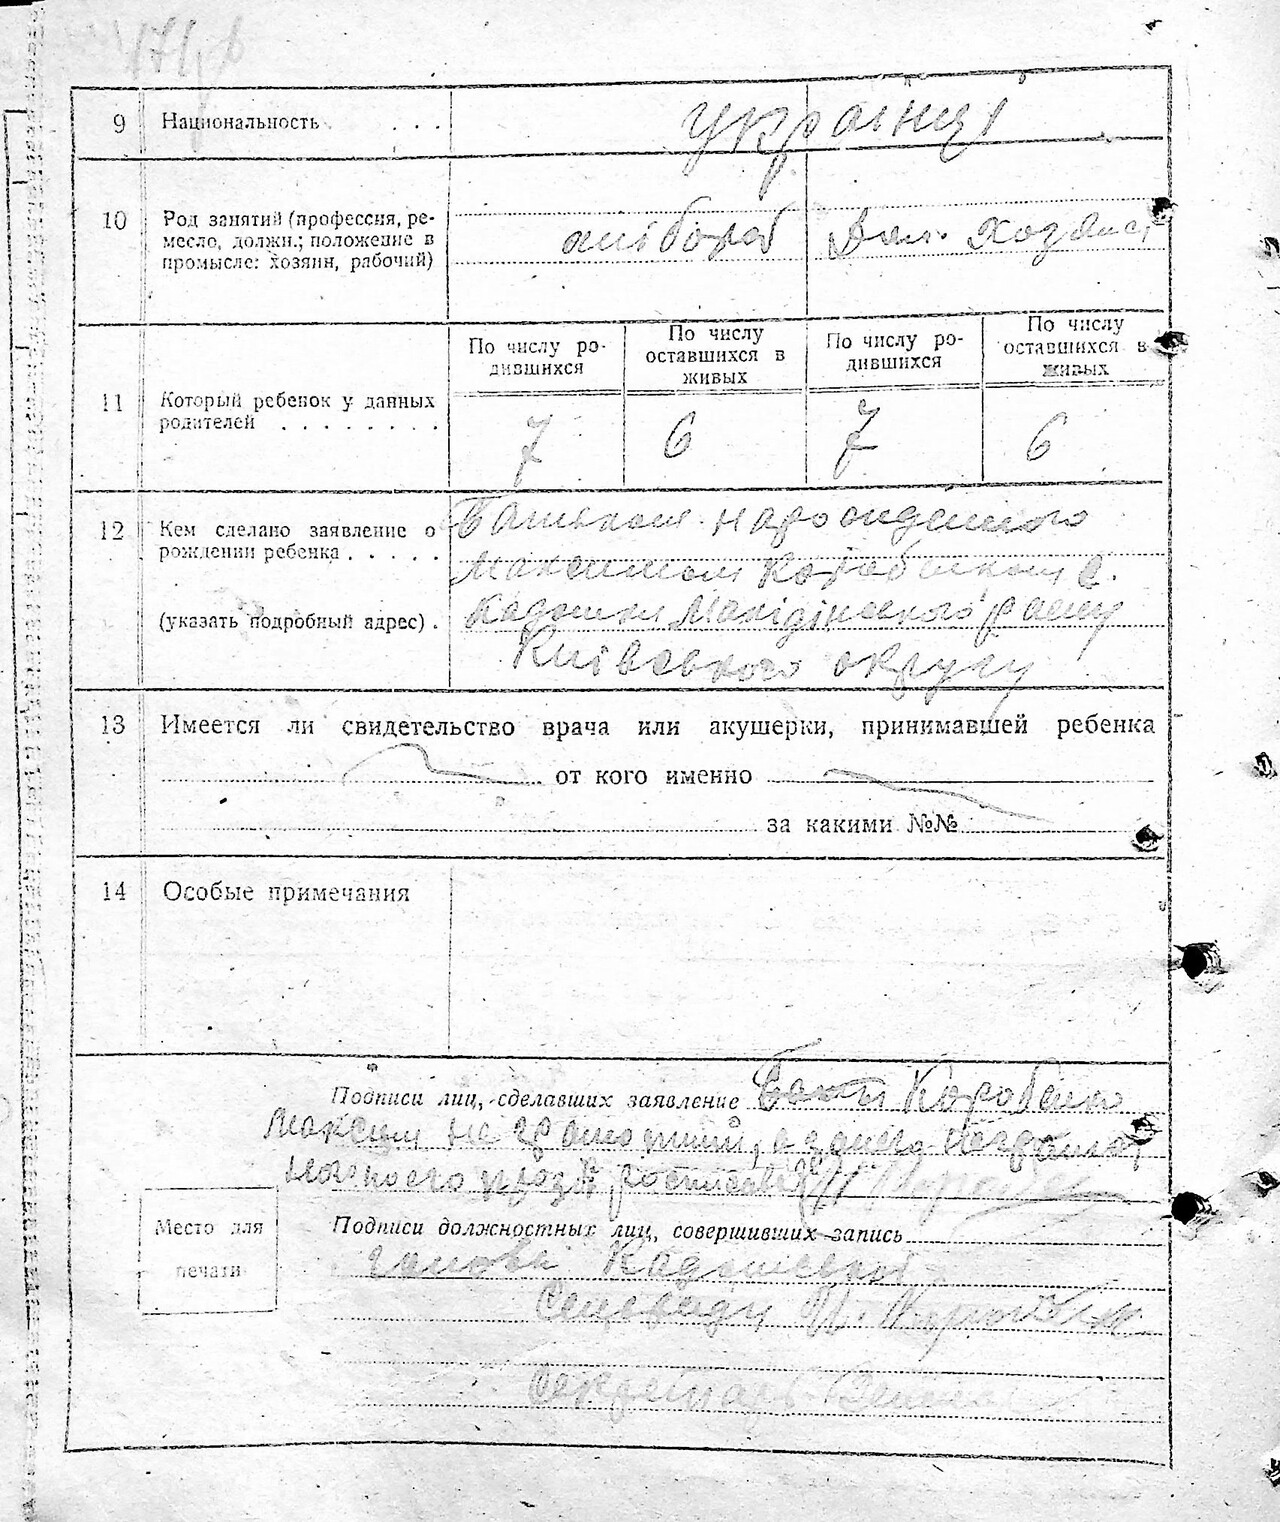 9 Национальность . . . українці
10 Род занятий (профессия, ре-
месло, должн.; положение в
промысле: хозяин, рабочий)
хлібороб Дом. хозяист
11 Который ребенок у данных
родителей . . . . . . . .
По числу ро-
дившихся
По числу
оставшихся в
живых
По числу ро-
дившихся
По числу
оставшихся в
живых
7 6 7 6
12 Кем сделано заявление о
рождении ребенка . . . . .
(указать подробный адрес) .
Батьком народженного
Максимом Коробенком с.
Макідінського району
Київського округу
13 Имеется ли свидетельство врача или акушерки, принимавшей ребенка
от кого именно
за какими №№
14 Особые примечания
Подписи лиц, сделавших заявление Батько Коробенко
Максим не грамотний, а за него
Место для
печати
Подписи должностных лиц, совершивших запись
Голова
Сельради
Секретарь